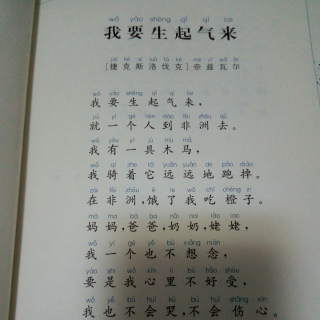 wǒ yào shēng qǐ qì lái
我要生起气来
[捷克斯洛伐克]奈兹瓦尔
wǒ yào shēng qǐ qì lái
我要生起气来，
jiù yí gè rén dào fēi zhōu qù
就一个人到非洲去。
wǒ yǒu yí jù mù mǎ
我有一具木马，
wǒ qí zhe tā yuǎn yuǎn de pǎo diào
我骑着它远远地跑掉。
zài fēi zhōu è le wǒ chī chéng zi
在非洲，饿了我吃橙子。
mā ma bà ba nǎi nai lǎo lao
妈妈，爸爸，奶奶，姥姥，
wǒ yí gè yě bù xiǎng niàn
我一个也不想念，
yào shi wǒ xīn li bù hǎo shòu
要是我心里不好受，
wǒ yě bú huì kū bú huì shāng xīn
我也不会哭，不会伤心。